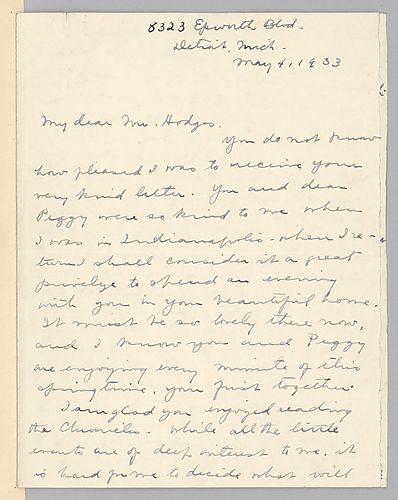 8323 Epworth Blvd.
Detroit, Mich.
May 4, 1933
My dear Mr. Hodges.
You do not know
how pleased I was to receive your
very kind letter. You and dear
Peggy were so kind to me when
I was in Indianapolis - when I re-
turn I shall consider it a great
to spend an evening
with you in your beautiful home.
It must be so lovely there now,
and I know you and Peggy
are enjoying every minute of this
springtime, your first together.
I am glad you enjoyed reading
the Chronicles. While all the little
events are of deep interest to me, it
is hard for me to decide what will